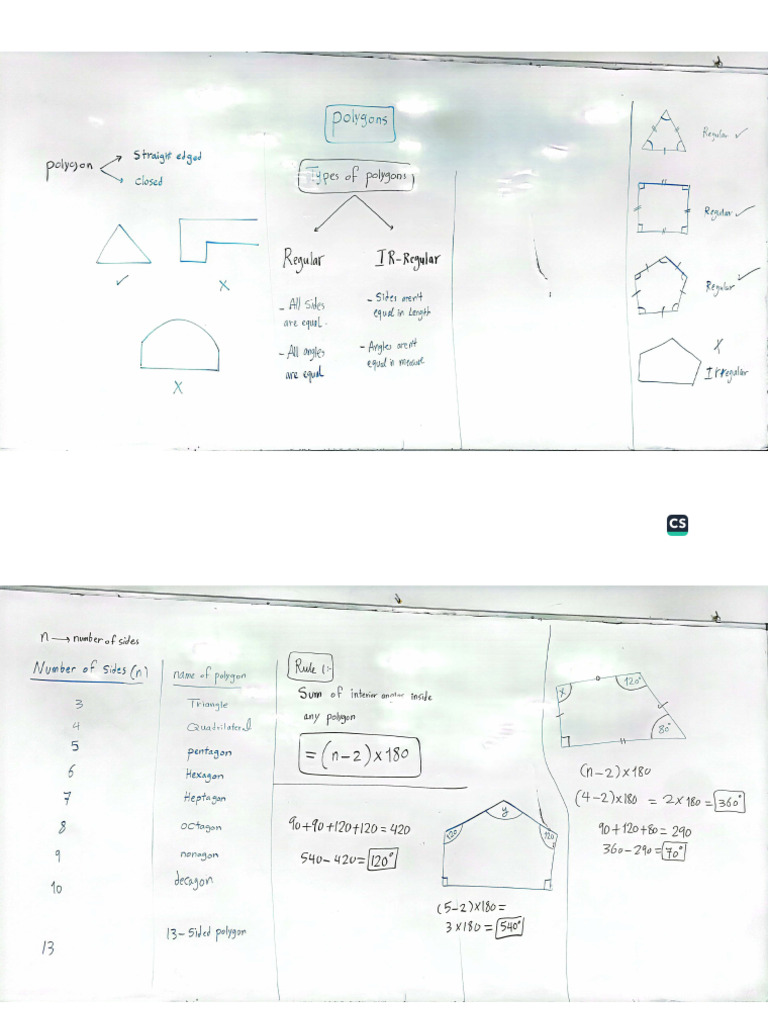 polygons
polygon
Straight edged
closed
✓
X
X
Types of polygons
Regular
- All sides
are equal.
- All angles
are equal
IR-Regular
- Sides aren't
equal in Length
- Angles aren't
equal in measure
Regular ✓
Regular ✓
Regular ✓
X
Irregular
CS
n → number of sides
Number of Sides (n)
name of polygon
3 Triangle
4 Quadrilateral
5 pentagon
6 Hexagon
7 Heptagon
8 octagon
9 nonagon
10 decagon
13 13-Sided polygon
Rule 1:-
Sum of interior inside
any polygon
= (n-2)×180
90+90+120+120=420
540-420=120°
120
y
120
(5-2)×180=
3×180=540°
x
120°
80°
(n-2)×180
(4-2)×180 = 2×180=360°
90+120+80=290
360-290=70°